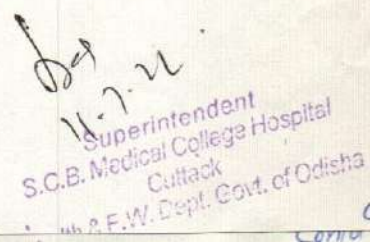 11.7.22
Superintendent
S.C.B. Medical College Hospital
Cuttack
& F.W. Dept. Govt. of Odisha